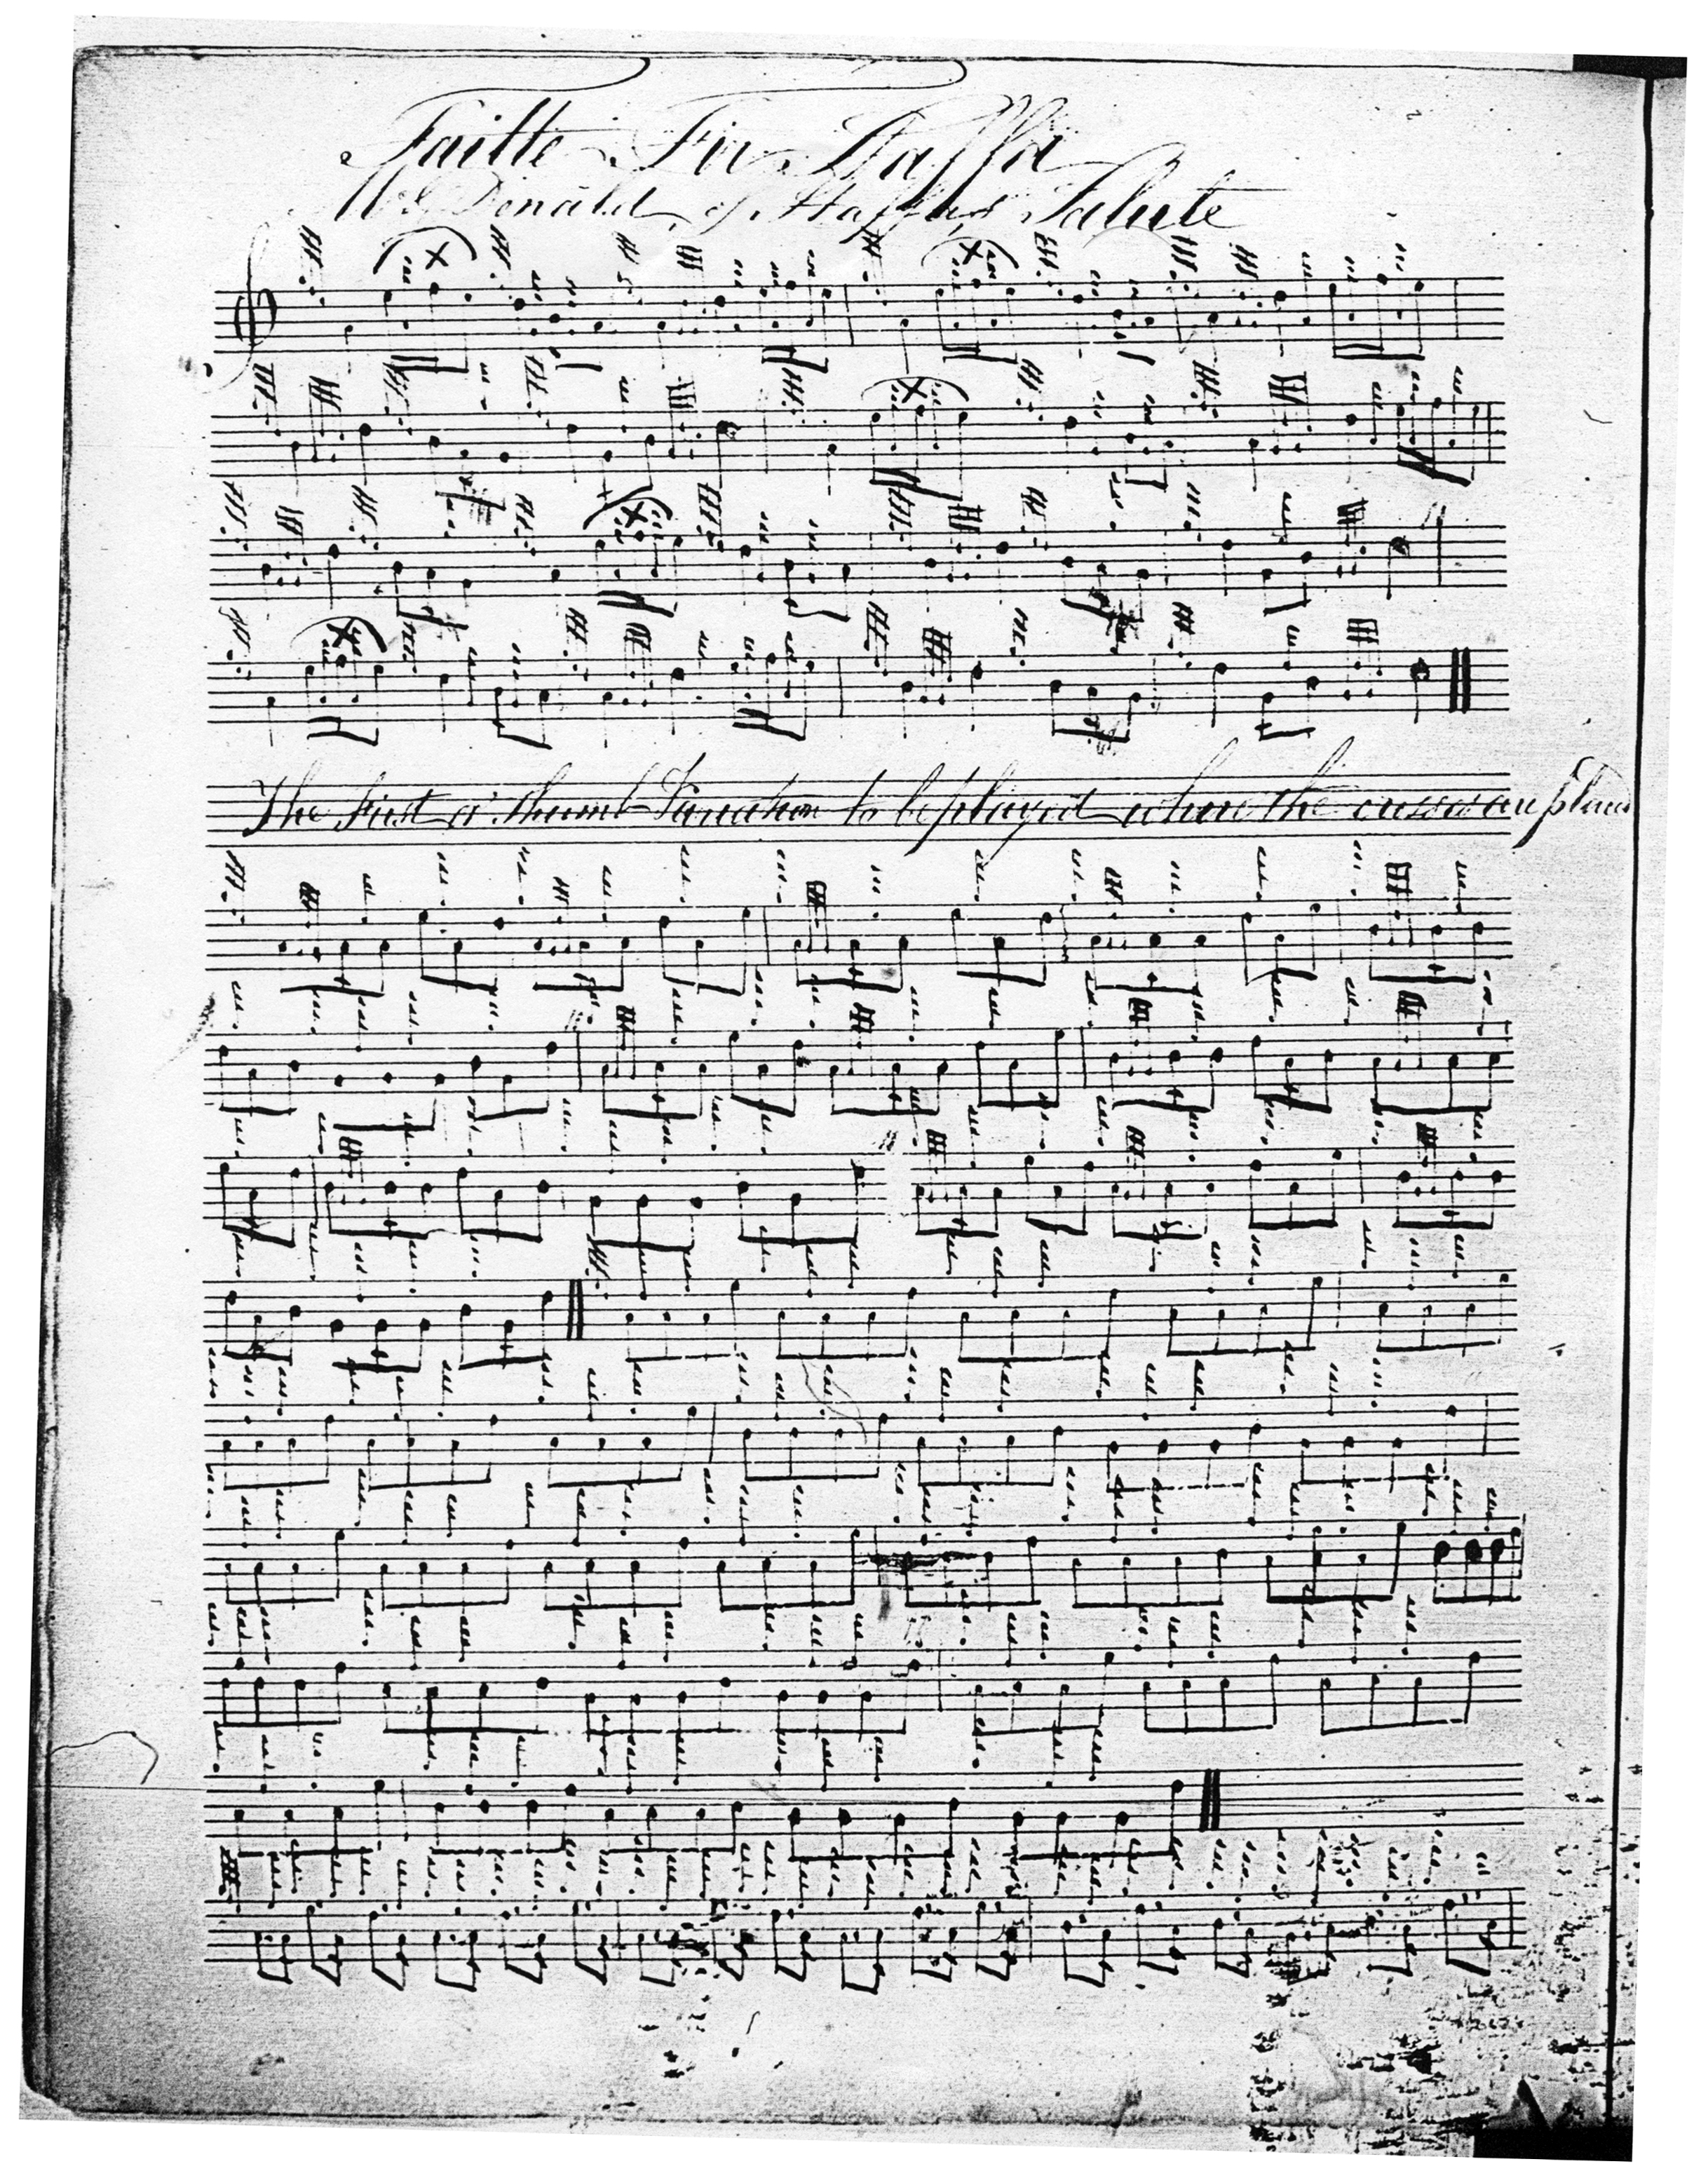 Failte Fir Staffa
McDonald of Staffa's Salute
The first or thumb Variation to be played where the crosses are placed